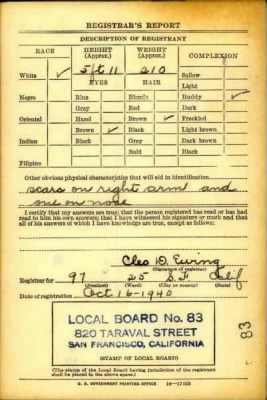 REGISTRAR'S REPORT
DESCRIPTION OF REGISTRANT
RACE HEIGHT (Approx.) WEIGHT (Approx.) COMPLEXION
White ✓ 5 ft 11 210 Sallow
EYES HAIR Light
Negro Blue Blonde Ruddy ✓
Gray Red Dark
Oriental Hazel Brown ✓ Freckled
Brown ✓ Black Light brown
Indian Black Gray Dark brown
Bald Black
Filipino
Other obvious physical characteristics that will aid in identification
scars on right arm and
one on nose
I certify that my answers are true; that the person registered has read or has had
read to him his own answers; that I have witnessed his signature or mark and that
all of his answers of which I have knowledge are true, except as follows:
Cleo D. Ewing
(Signature of registrar)
Registrar for 97 25 S.F. Calif
(Precinct) (Ward) (City or county) (State)
Date of registration Oct 16-1940
LOCAL BOARD No. 83
820 TARAVAL STREET
SAN FRANCISCO, CALIFORNIA
83
(STAMP OF LOCAL BOARD)
(The stamp of the Local Board having jurisdiction of the registrant
shall be placed in the above space.)
U. S. GOVERNMENT PRINTING OFFICE 16—17105